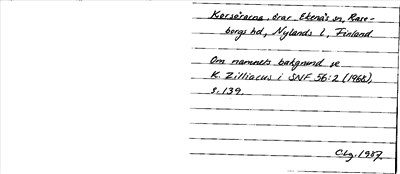 Korsörarna, örar, Ekenäs sn, Rase-
borgs hd, Nylands l, Finland
Om namnets bakgrund se
K. Zilliacus i SNF 56:2 (1968),
s. 139.
CLg. 1987.